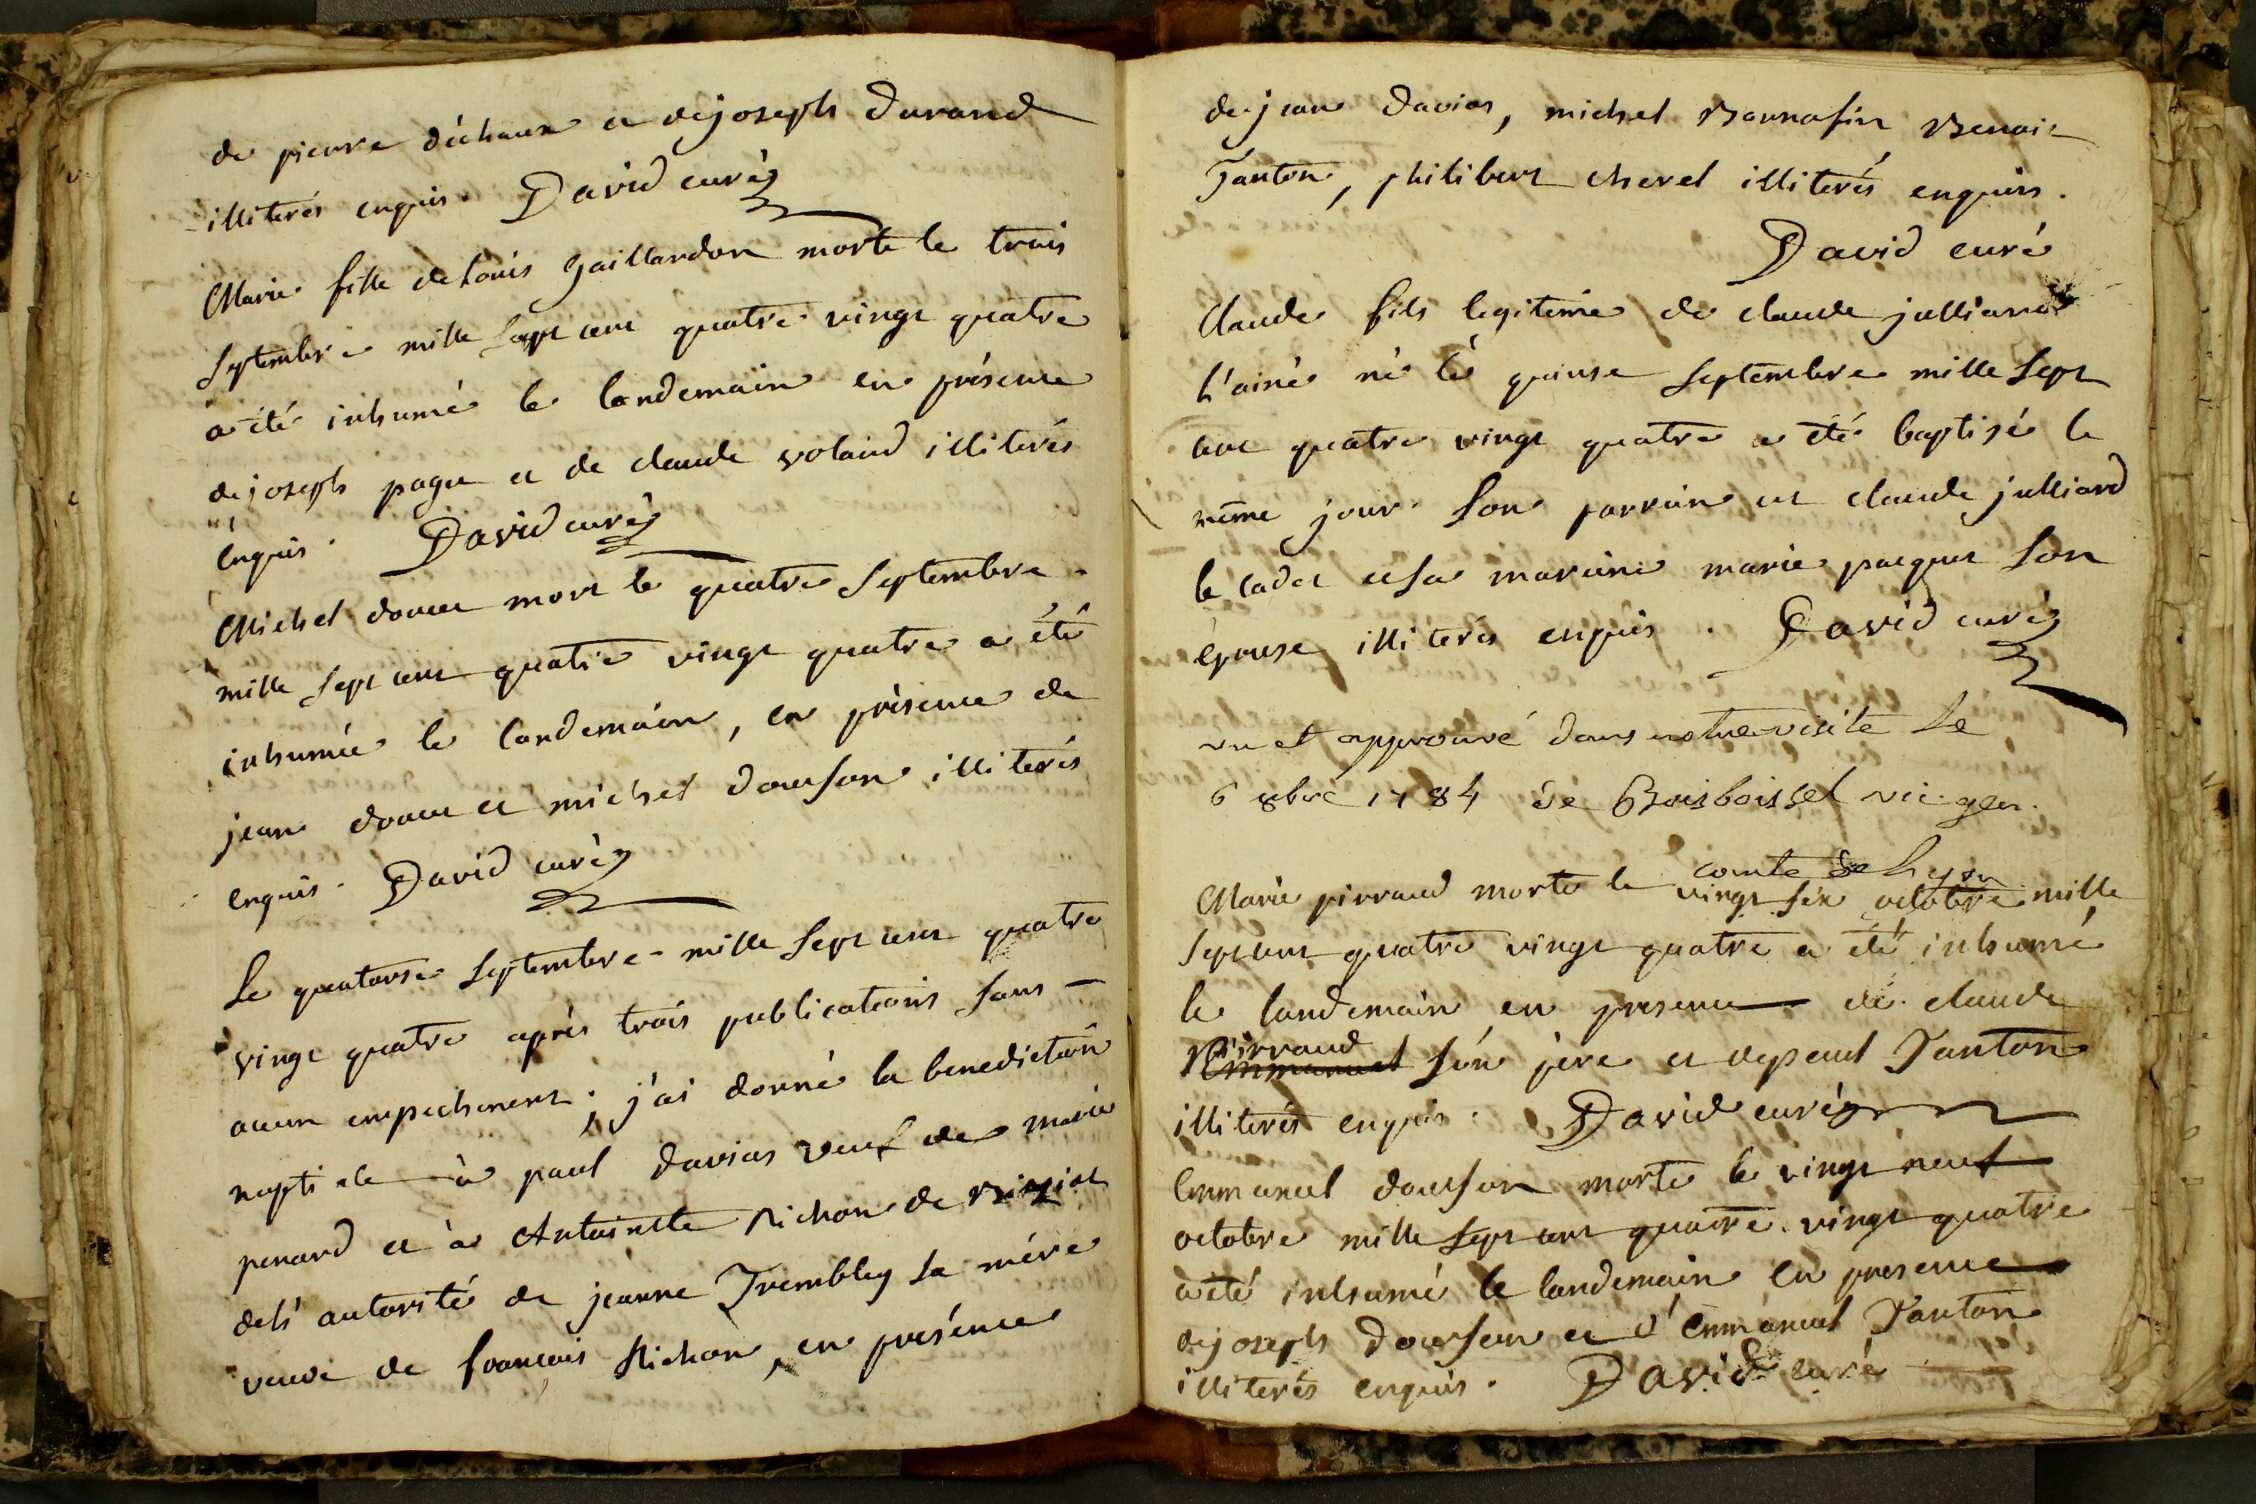 de pierre déchaux et de joseph durand
illiterés enquis. David curé
Marie fille de louis gaillardon morte le trois
septembre mille sept cent quatre vingt quatre
a été inhumé le landemain en présence
de joseph page et de claude volaind illiterés
enquis. David curé
Michel doucet mort le quatre septembre
mille sept cent quatre vingt quatre a été
inhumée le landemain, en présence de
jean doucet et michel dourson illiterés
enquis. David curé
Le quatorse septembre mille sept cent quatre
vingt quatre après trois publications sans
aucun empechement, j'ai donné la benediction
nuptiale à paul davias veuf de marie
penard et à Antoinette Nichon de
de l'autorité de jeanne Trembley sa mére
veuve de francois Nichon, en présence
de jean davias, michel Bonnafin Benoit
Janton, philibert cheret illiterés enquis.
David curé
Claude fils legitime de claude julliard
l'ainé né le quinse septembre mille sept
cent quatre vingt quatre a été baptisé le
même jour son parrain est claude julliard
le cadet et sa maraine marie paquet son
épouse illiterés enquis. David curé
vu et approuvé dans notre visite le
6 8bre 1784 de Boisboissel vic. gen.
comte de Lyon
Marie pirraud morte le vingt six octobre mille
sept cent quatre vingt quatre a été inhumé
le landemain en presence de claude
Pirraud
Emmanuel son pere et de paul Janton
illiterés enquis. David curé
Emmanuel dourson morte le vingt neuf
octobre mille sept cent quatre vingt quatre
a été inhumé le landemain en presence
de joseph dourson et d'Emmanuel Janton
illiterés enquis. David curé